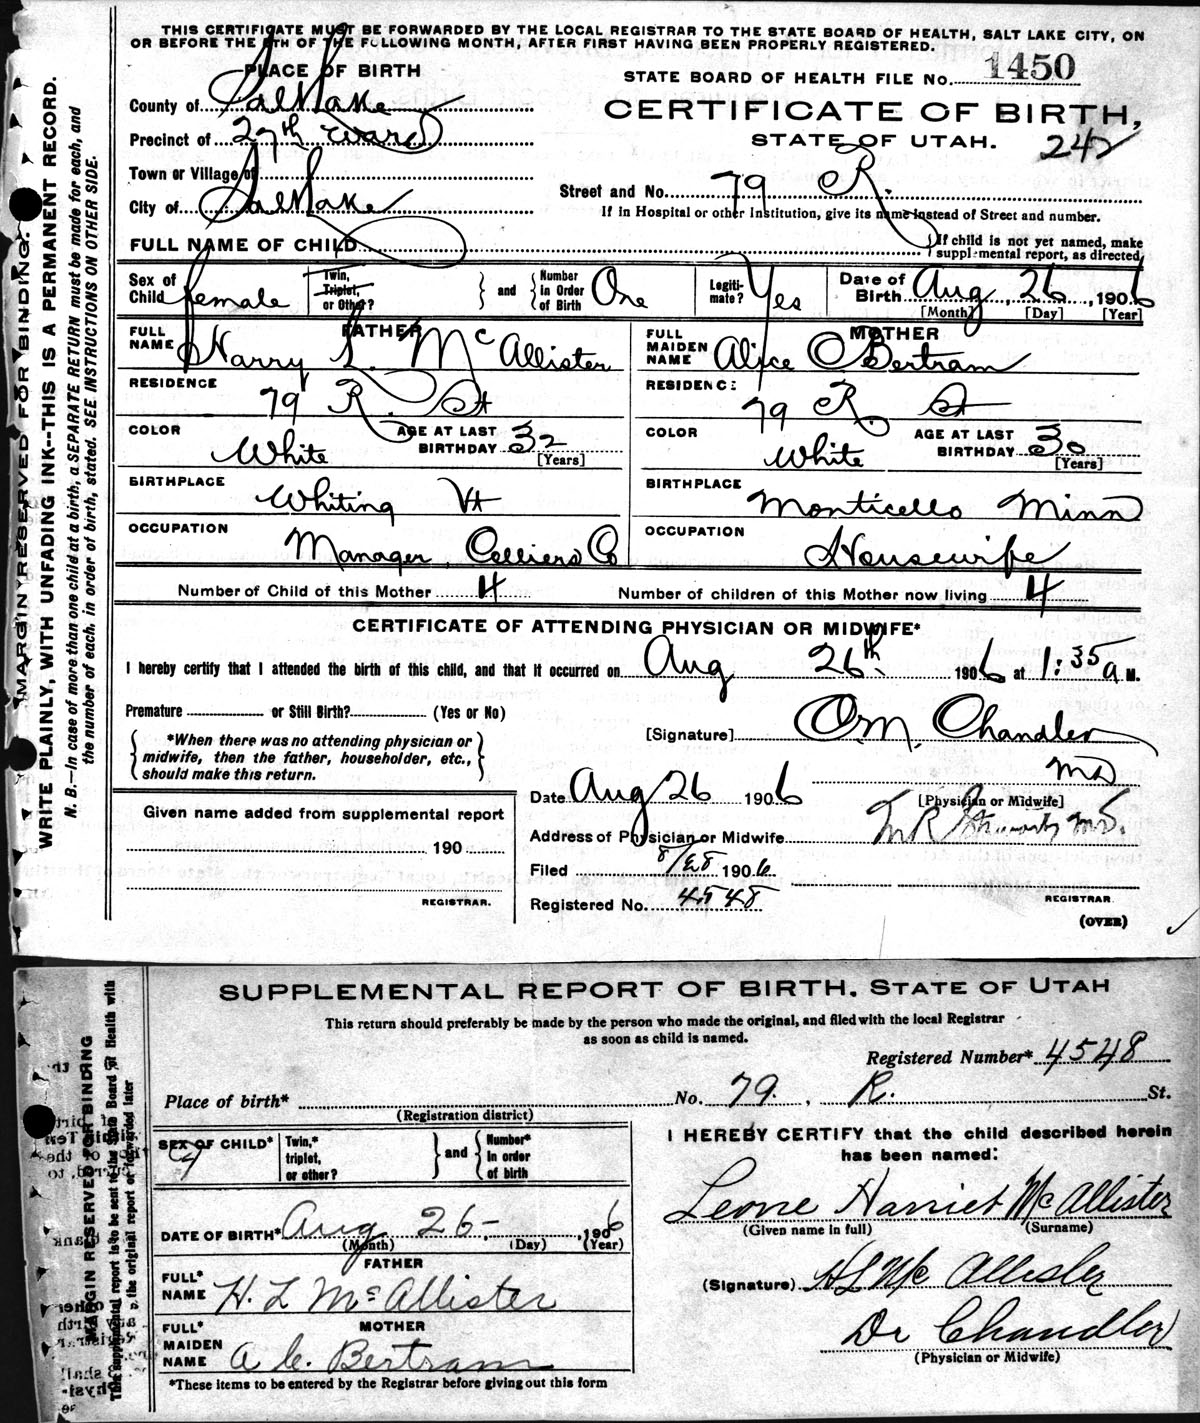 THIS CERTIFICATE MUST BE FORWARDED BY THE LOCAL REGISTRAR TO THE STATE BOARD OF HEALTH, SALT LAKE CITY, ON
OR BEFORE THE 5TH OF THE FOLLOWING MONTH, AFTER FIRST HAVING BEEN PROPERLY REGISTERED.
PLACE OF BIRTH
STATE BOARD OF HEALTH FILE No. 1450
County of Salt Lake
CERTIFICATE OF BIRTH,
Precinct of 27th Ward
STATE OF UTAH. 242
Town or Village of
Street and No. 79 R.
City of Salt Lake
If in Hospital or other Institution, give its name instead of Street and number.
FULL NAME OF CHILD
If child is not yet named, make
supplemental report, as directed
Sex of Child female
Twin, Triplet, or Other?
and
Number in Order of Birth One
Legitimate? Yes
Date of Birth Aug 26, 1906
[Month] [Day] [Year]
FATHER
FULL NAME Harry L. McAllister
MOTHER
FULL MAIDEN NAME Alice C Bertram
RESIDENCE 79 R. St
RESIDENCE 79 R. St
COLOR White AGE AT LAST BIRTHDAY 32 [Years]
COLOR White AGE AT LAST BIRTHDAY 30 [Years]
BIRTHPLACE Whiting Vt
BIRTHPLACE Monticello Minn
OCCUPATION Manager, Colliers Co
OCCUPATION Housewife
Number of Child of this Mother 4 Number of children of this Mother now living 4
CERTIFICATE OF ATTENDING PHYSICIAN OR MIDWIFE*
I hereby certify that I attended the birth of this child, and that it occurred on Aug 26th 1906 at 1:35 a M.
Premature or Still Birth? (Yes or No)
[Signature] O.M. Chandler
MD
*When there was no attending physician or
midwife, then the father, householder, etc.,
should make this return.
Date Aug 26 1906 [Physician or Midwife]
Given name added from supplemental report
Address of Physician or Midwife
190
Filed 8/28 1906
REGISTRAR.
Registered No. 4548
REGISTRAR
(OVER)
MARGIN RESERVED FOR BINDING.
WRITE PLAINLY, WITH UNFADING INK--THIS IS A PERMANENT RECORD.
N. B.—In case of more than one child at a birth, a SEPARATE RETURN must be made for each, and
the number of each, in order of birth, stated. SEE INSTRUCTIONS ON OTHER SIDE.
SUPPLEMENTAL REPORT OF BIRTH. STATE OF UTAH
This return should preferably be made by the person who made the original, and filed with the local Registrar
as soon as child is named.
Registered Number* 4548
Place of birth* No. 79. , R. St.
(Registration district)
SEX OF CHILD*
Twin,* triplet, or other?
and
Number* in order of birth
I HEREBY CERTIFY that the child described herein
has been named:
Leone Harriet McAllister
(Given name in full) (Surname)
DATE OF BIRTH* Aug 26 - , 1906
(Month) (Day) (Year)
FATHER
FULL* NAME H. L McAllister
(Signature) H L McAllister
MOTHER
FULL* MAIDEN NAME A C. Bertram
Dr Chandler
(Physician or Midwife)
*These items to be entered by the Registrar before giving out this form
MARGIN RESERVED FOR BINDING